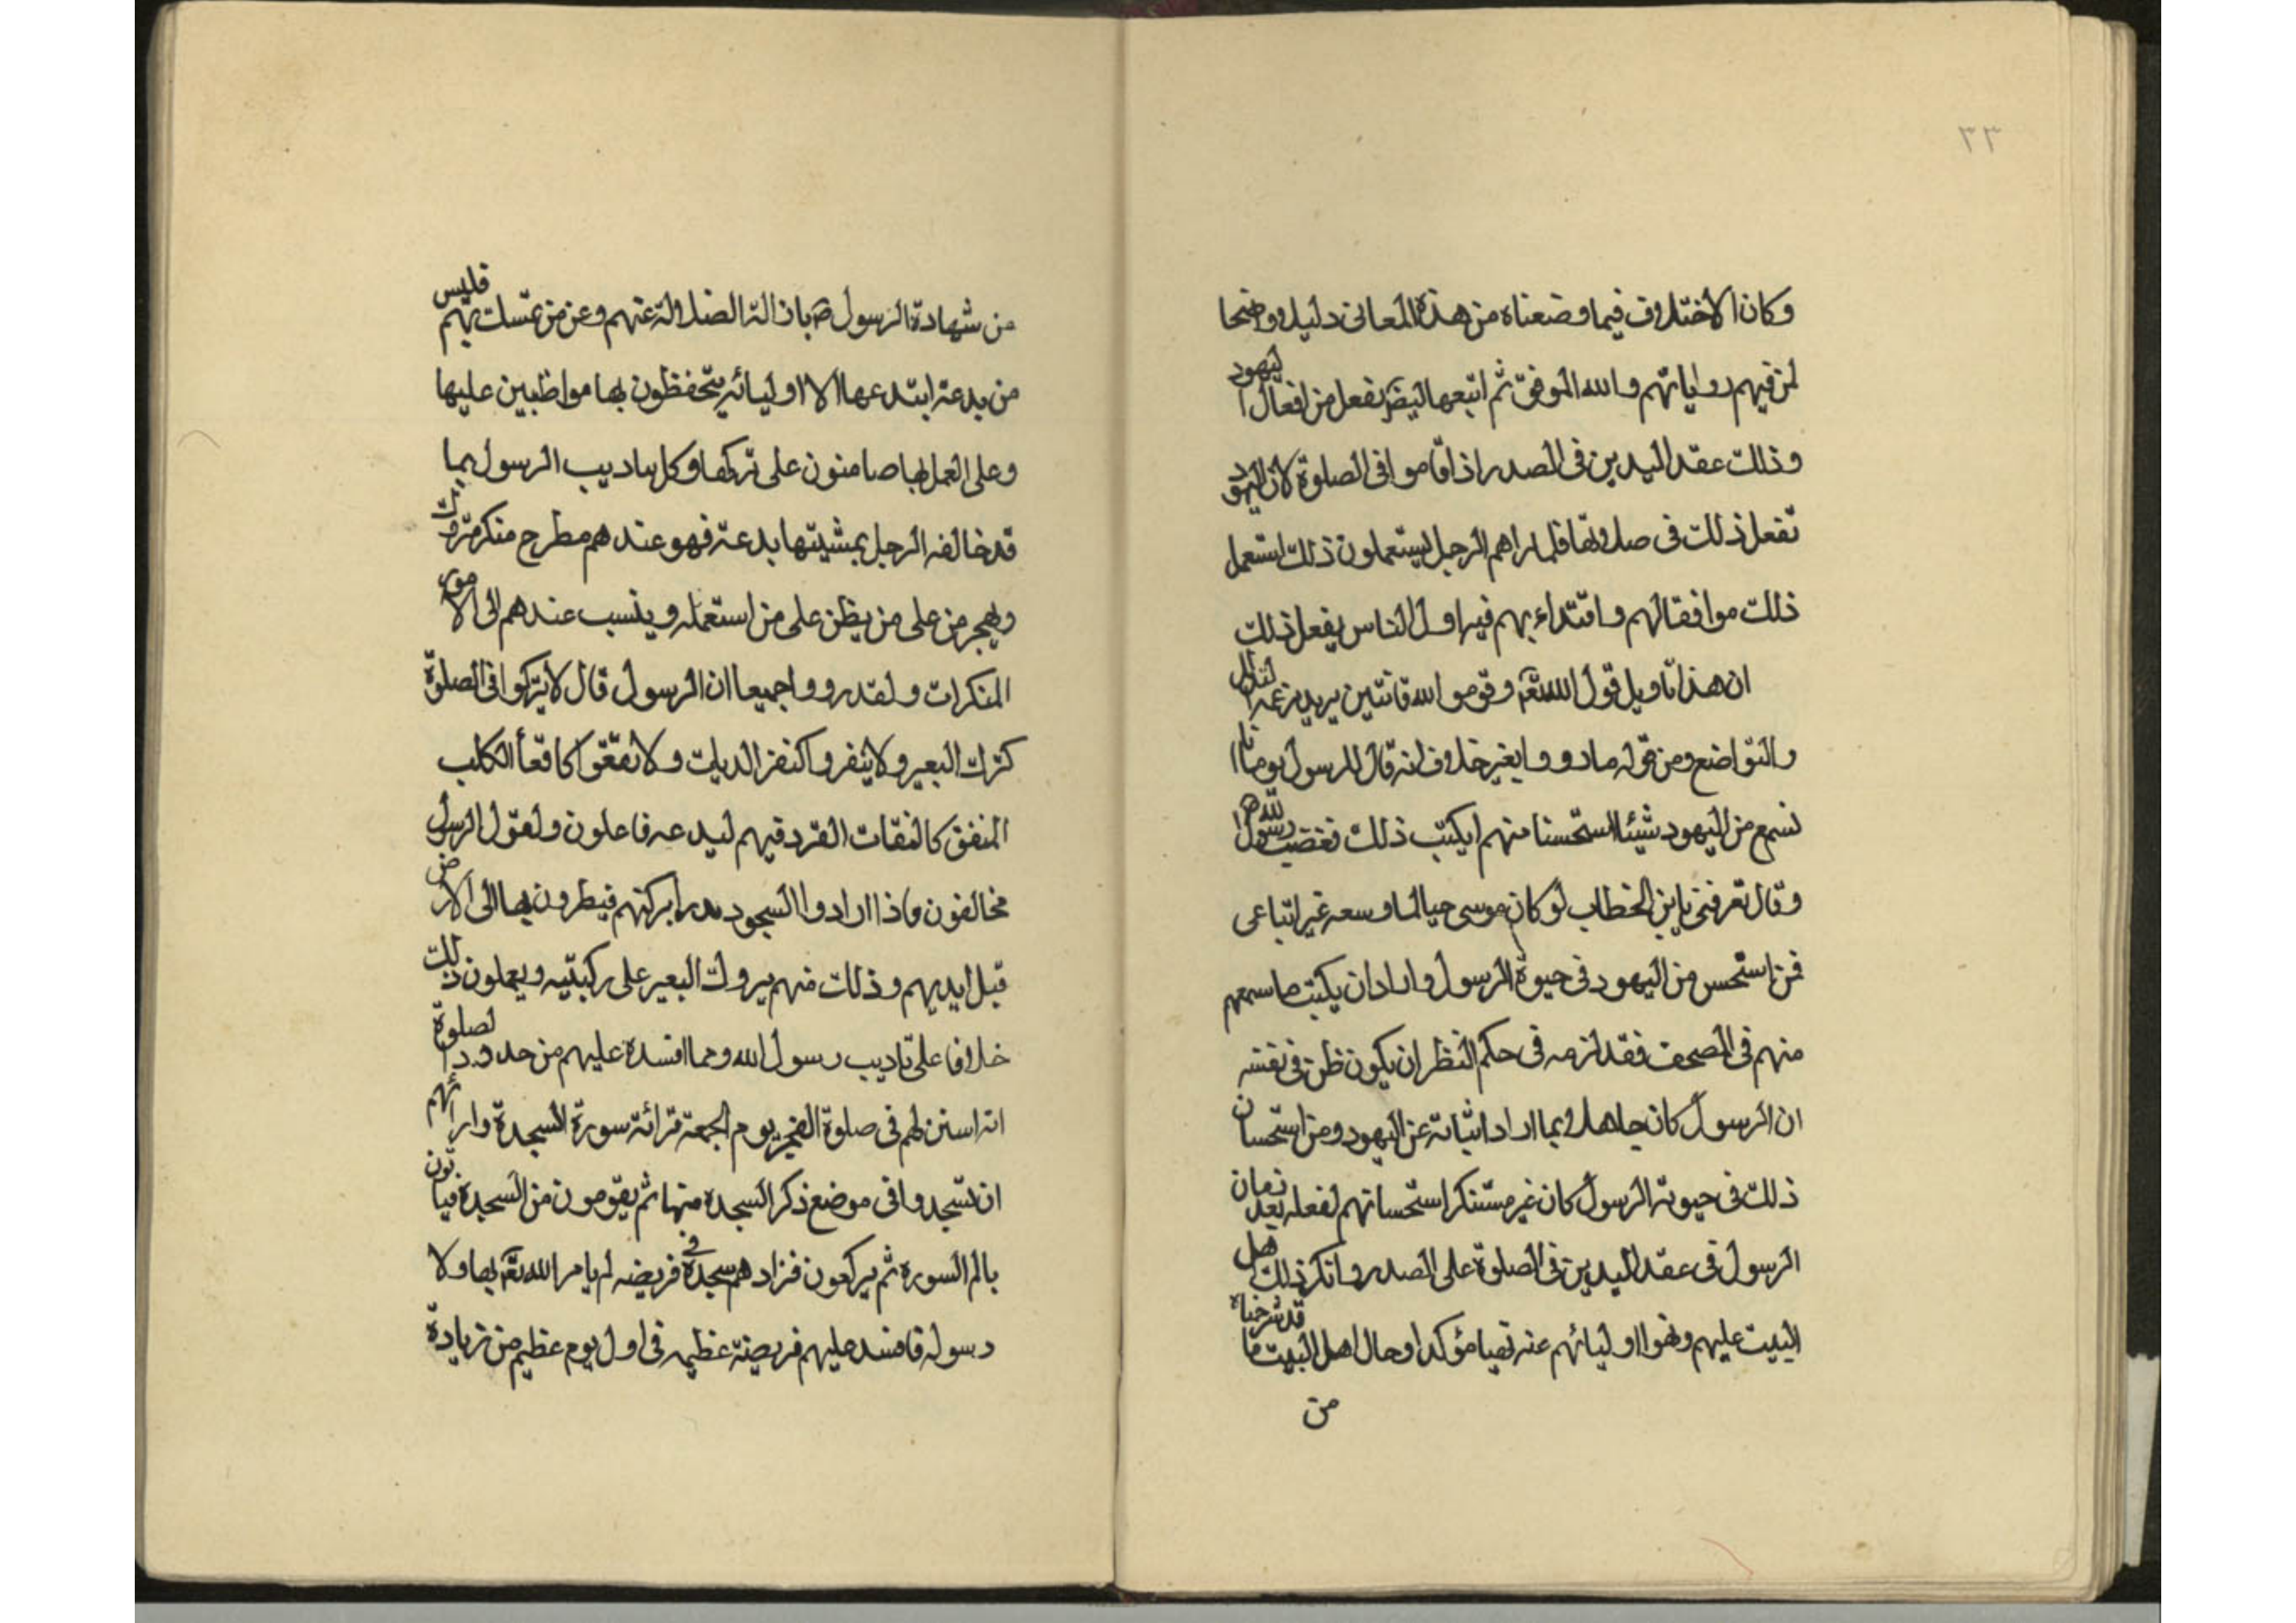 ٣٣
وكان الاختلاف فيما وضعناه من هذه المعانى دليلا واضحا
لمن فهم رواياتهم والله الموفق ثم اتبعها ايضا بفعل من افعال اليهود
وذلك عقد اليدين فى الصدر اذا قاموا فى الصلوة لان اليهود
تفعل ذلك فى صلوتها فلما راهم الرجل يستعملون ذلك استعمل
ذلك موافقا لهم واقتداء بهم فيه اول الناس يفعل ذلك
ان هذا تاويل قول الله تعه وقوموا لله قانتين يريد بزعمه التذلل
والتواضع ومن قوله ما رووا بغير خلاف انه قال للرسول يوما انا
نسمع من اليهود شيئا نستحسنا منهم ايكتب ذلك فغضب رسول الله ص
وقال تعرفنى يابن الخطاب لو كان موسى حيا لما وسعه غير اتباعى
فمن استحسن من اليهود فى حيوة الرسول واراد ان يكتب ما سمعهم
منهم فى المصحف فقد لزمه فى حكم النظر ان يكون ظن فى نفسه
ان الرسول كان جاهلا بما اراد اثباته عن اليهود ومن استحسان
ذلك فى حيوته الرسول كان غير مستنكر استحسانهم لفعله بعد زمان
الرسول فى عقد اليدين فى الصلوة على الصدر وانكر ذلك اهل
البيت عليهم ونهوا اوليائهم عنه نهيا مؤكدا وحال اهل البيت ما قد شرحناه
من
من شهادة الرسول ص بازالة الضلالة عنهم وعن من تمسك بهم فليس
من بدعة ابتدعها الا اوليائه يتحفظون بها مواظبين عليها
وعلى العمل بها صامنون على تركها وكل تاديب الرسول بما
قد خالفه الرجل بمشيتها بدعة فهو عندهم مطرح منكر متروك
ويهجر من على من يظن على من استعمله وينسب عندهم الى الامور
المنكرات ولقد رووا جميعا ان الرسول قال لا تبركوا فى الصلوة
كبرك البعير ولا ينفروا كنقر الديك ولا تقعوا كاقعأ الكلب
المنفق كالنفقات القرد فهم لبدعه فاعلون ولقول الرسول
مخالفون فاذا ارادوا السجود بدرا بركبهم فيطرون بها الى الارض
قبل ايديهم وذلك منهم بروك البعير على ركبتيه ويعملون ذلك
خلافا على تاديب رسول الله ومما افسده عليهم من حدود الصلوة
انه استن لهم فى صلوة الفجر يوم الجمعة قرائة سورة السجدة وارائهم
ان تسجدوا فى موضع ذكر السجدة منها ثم يقومون من السجدة فياتون
بالم السورة ثم يركعون فزادهم سجدة فى فريضه لم يامر الله تعه بها ولا
رسوله فافسد عليهم فريضة عظيمه فى اول يوم عظيم من زيادة